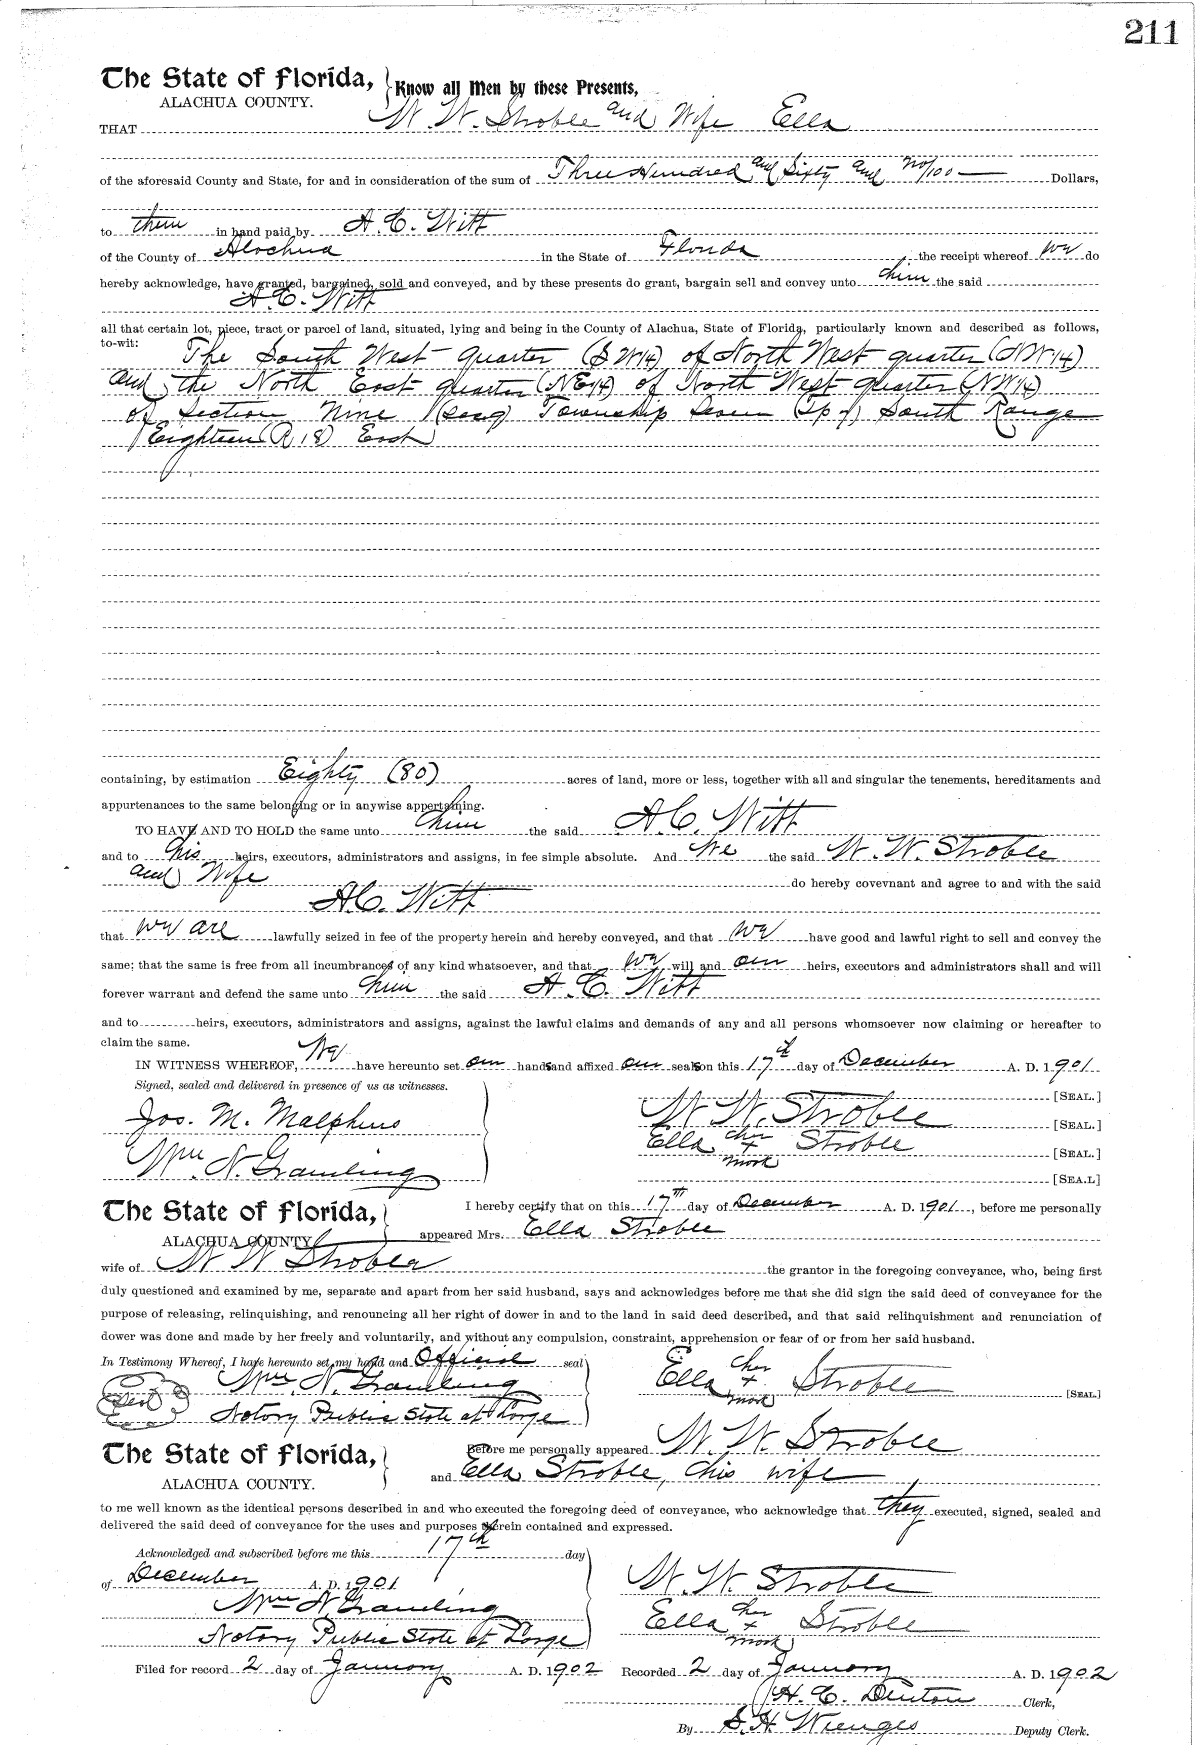 211
The State of Florida, } Know all Men by these Presents,
ALACHUA COUNTY.
THAT W. W. Stroble and Wife Ella
of the aforesaid County and State, for and in consideration of the sum of Three Hundred and Sixty and no/100 Dollars,
to them in hand paid by A. C. Witt
of the County of Alachua in the State of Florida the receipt whereof we do
hereby acknowledge, have granted, bargained, sold and conveyed, and by these presents do grant, bargain sell and convey unto him the said
A. C. Witt
all that certain lot, piece, tract or parcel of land, situated, lying and being in the County of Alachua, State of Florida, particularly known and described as follows,
to-wit: The South West quarter (SW1/4) of North West quarter (NW1/4)
and the North East quarter (NE1/4) of North West quarter (NW1/4)
of Section Nine (Sec 9) Township Seven (Tp 7) South Range
Eighteen (R 18) East
containing, by estimation Eighty (80) acres of land, more or less, together with all and singular the tenements, hereditaments and
appurtenances to the same belonging or in anywise appertaining.
TO HAVE AND TO HOLD the same unto him the said A. C. Witt
and to his heirs, executors, administrators and assigns, in fee simple absolute. And We the said W. W. Stroble
and Wife do hereby covevnant and agree to and with the said
A. C. Witt
that we are lawfully seized in fee of the property herein and hereby conveyed, and that we have good and lawful right to sell and convey the
same; that the same is free from all incumbrances of any kind whatsoever, and that we will and our heirs, executors and administrators shall and will
forever warrant and defend the same unto him the said A. C. Witt
and to heirs, executors, administrators and assigns, against the lawful claims and demands of any and all persons whomsoever now claiming or hereafter to
claim the same.
IN WITNESS WHEREOF, We have hereunto set our hands and affixed our seals on this 17th day of December A. D. 1901
Signed, sealed and delivered in presence of us as witnesses. [SEAL.]
Jos. M. Malphus W. W. Stroble [SEAL.]
Wm. N. Gramling Ella her x mark Stroble [SEAL.]
[SEA.L]
The State of Florida, } I hereby certify that on this 17th day of December A. D. 1901, before me personally
ALACHUA COUNTY appeared Mrs. Ella Stroble
wife of W W Stroble the grantor in the foregoing conveyance, who, being first
duly questioned and examined by me, separate and apart from her said husband, says and acknowledges before me that she did sign the said deed of conveyance for the
purpose of releasing, relinquishing, and renouncing all her right of dower in and to the land in said deed described, and that said relinquishment and renunciation of
dower was done and made by her freely and voluntarily, and without any compulsion, constraint, apprehension or fear of or from her said husband.
In Testimony Whereof, I have hereunto set my hand and Official seal
Wm. N. Gramling Ella her x mark Stroble [SEAL.]
Seal Notary Public State at Large
The State of Florida, } Before me personally appeared W. W. Stroble
ALACHUA COUNTY. and Ella Stroble, his wife
to me well known as the identical persons described in and who executed the foregoing deed of conveyance, who acknowledge that they executed, signed, sealed and
delivered the said deed of conveyance for the uses and purposes therein contained and expressed.
Acknowledged and subscribed before me this 17th day
of December A. D. 1901 W. W. Stroble
Wm N. Gramling Ella her x mark Stroble
Notary Public State at Large
Filed for record 2 day of January A. D. 1902 Recorded 2 day of January A. D. 1902
H. C. Denton Clerk,
By S. H. Wienges Deputy Clerk.